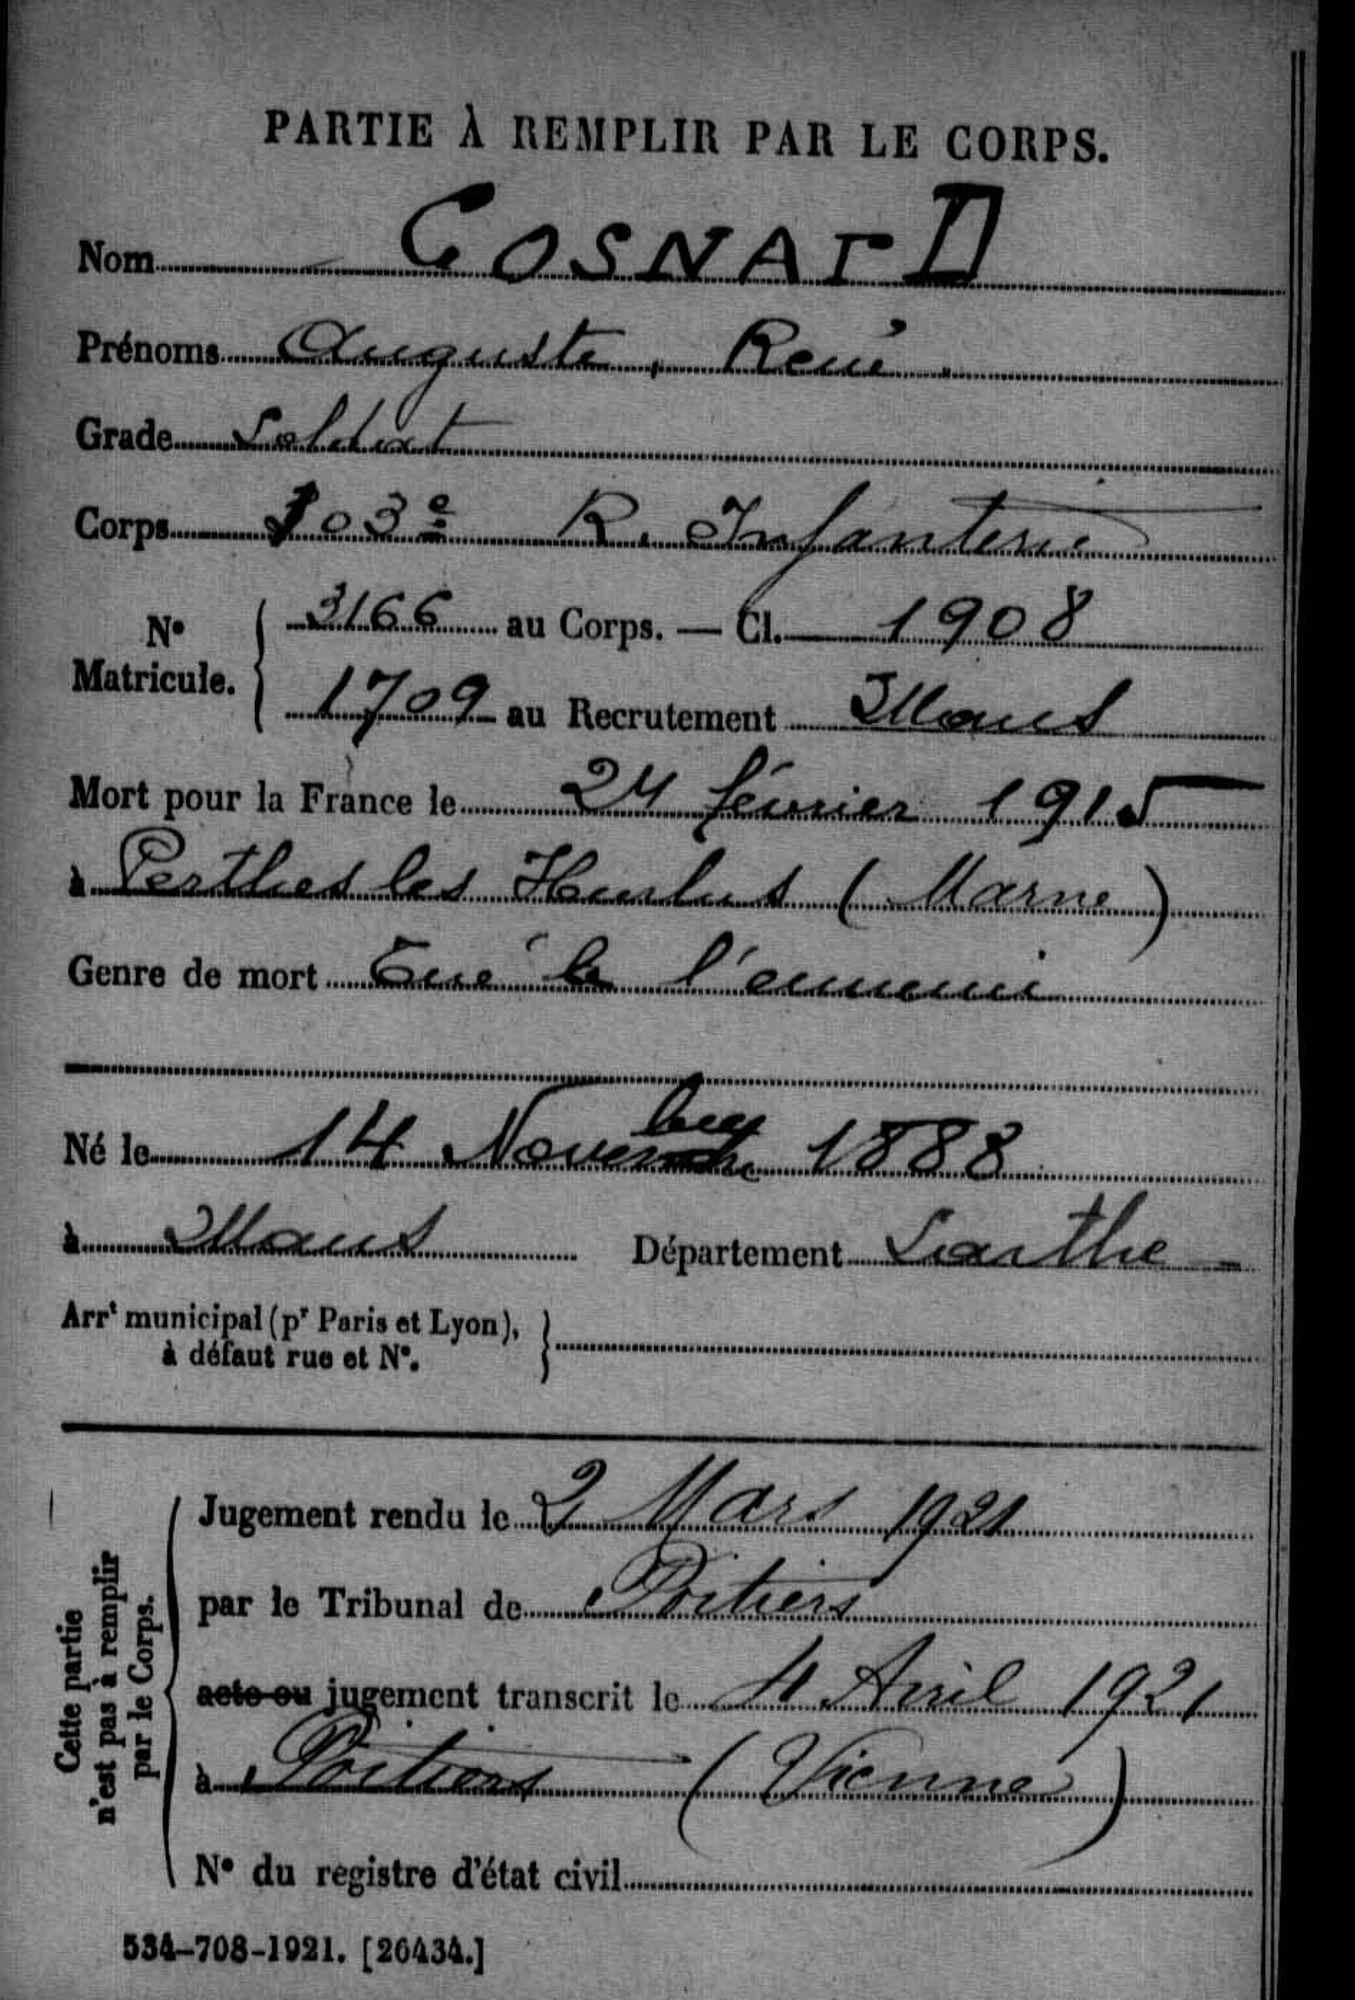 PARTIE À REMPLIR PAR LE CORPS.
Nom COSNARD
Prénoms Auguste, René.
Grade Soldat
Corps 103e R. Infanterie
No Matricule. 3166 au Corps. — Cl. 1908
1709 au Recrutement Mans
Mort pour la France le 24 février 1915
à Perthes les Hurlus (Marne)
Genre de mort Tué à l'ennemi
Né le 14 Novembre 1888
à Mans Département Sarthe
Arrt municipal (pr Paris et Lyon),
à défaut rue et No.
Cette partie
n'est pas à remplir
par le Corps.
Jugement rendu le 2 Mars 1921
par le Tribunal de Poitiers
acte ou jugement transcrit le 4 Avril 1921
à Poitiers (Vienne)
No du registre d'état civil
534-708-1921. [26434.]